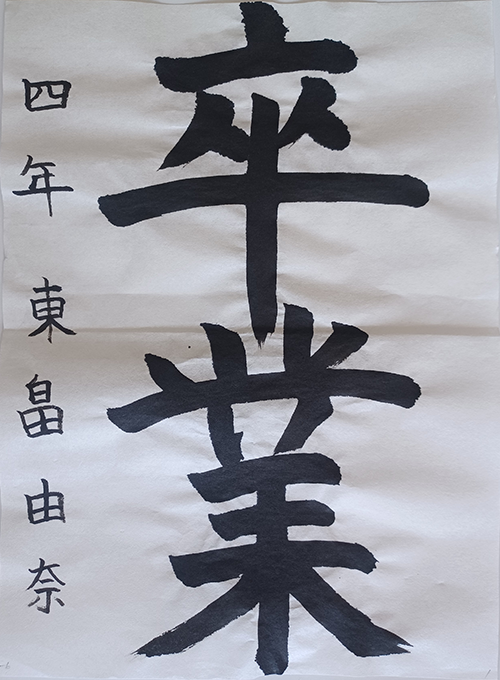 卒業
四年 東畠由奈